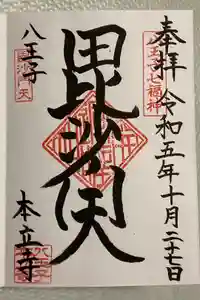 奉拝
令和五年十月二十七日
八王子七福神
毘沙門天
八王子
本立寺